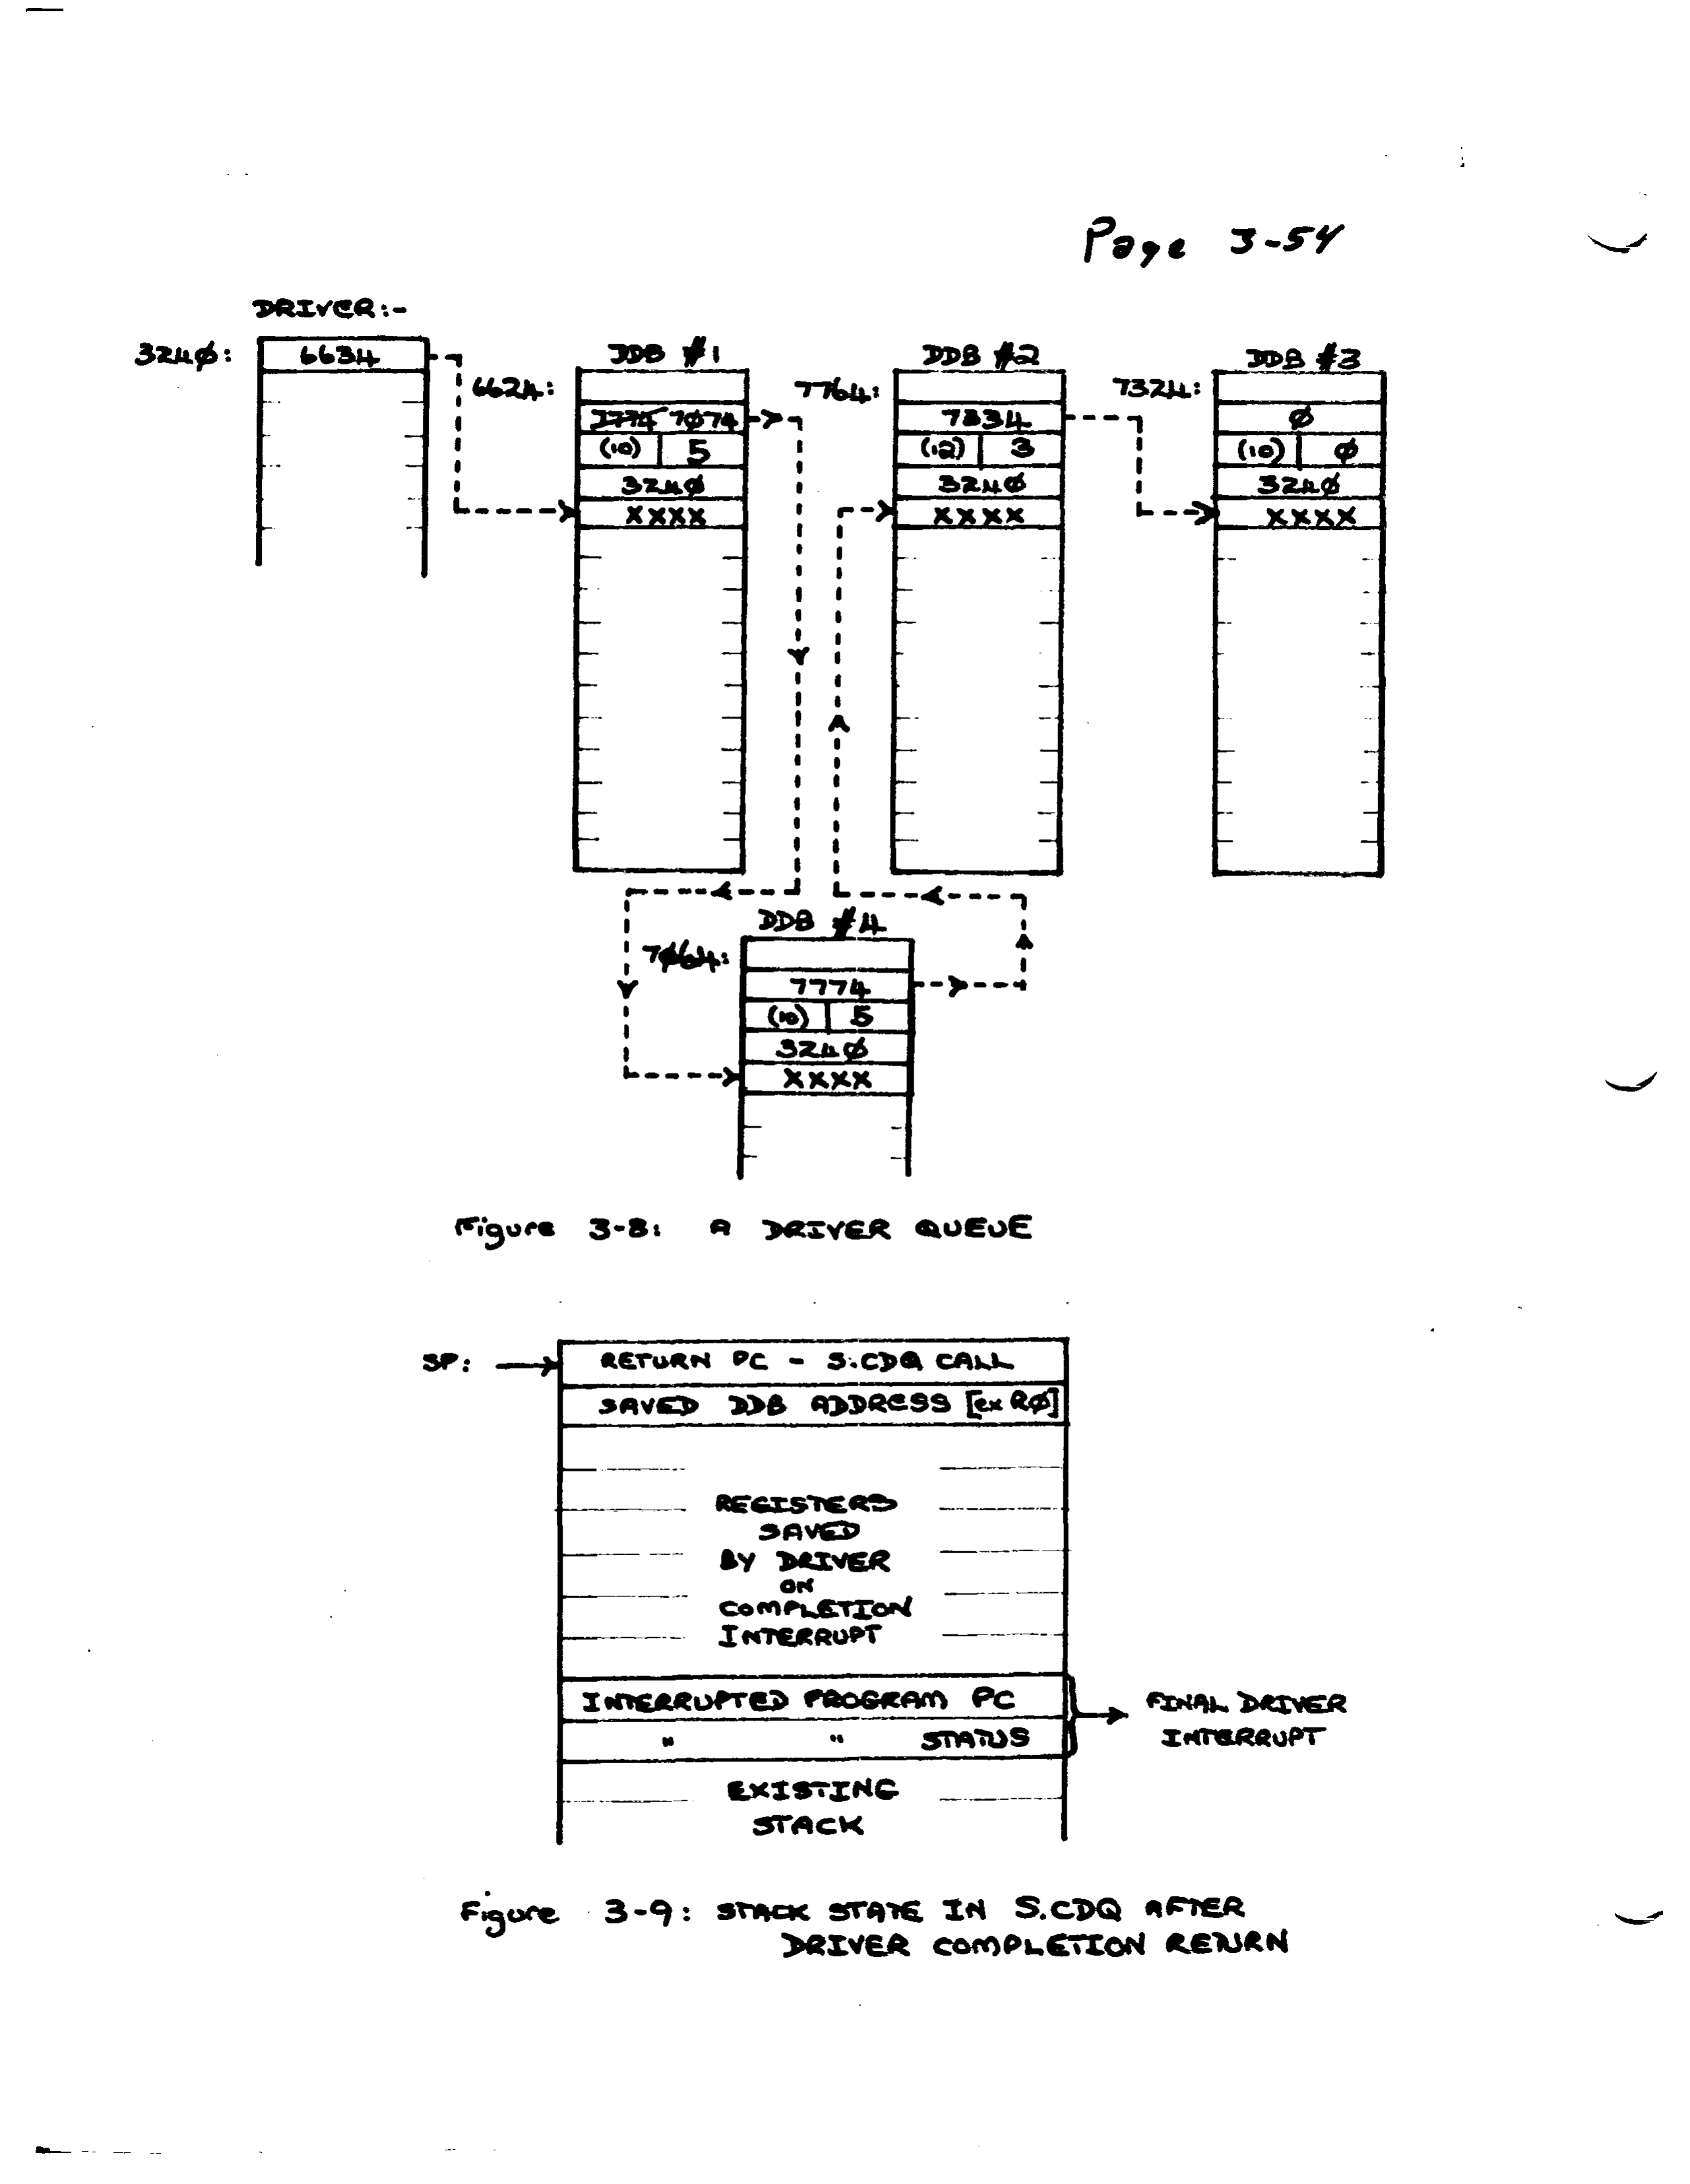 Page 3-54
DRIVER:-
324Ø: 6634
DDB #1
6624:
7774 7Ø74
(10) 5
324Ø
XXXX
DDB #2
7764:
7334
(12) 3
324Ø
XXXX
DDB #3
7324:
Ø
(10) Ø
324Ø
XXXX
DDB #4
7Ø64:
7774
(10) 5
324Ø
XXXX
Figure 3-8: A DRIVER QUEUE
SP: RETURN PC - S.CDQ CALL
SAVED DDB ADDRESS [ex RØ]
REGISTERS
SAVED
BY DRIVER
ON
COMPLETION
INTERRUPT
INTERRUPTED PROGRAM PC
" " STATUS
FINAL DRIVER
INTERRUPT
EXISTING
STACK
Figure 3-9: STACK STATE IN S.CDQ AFTER
DRIVER COMPLETION RETURN